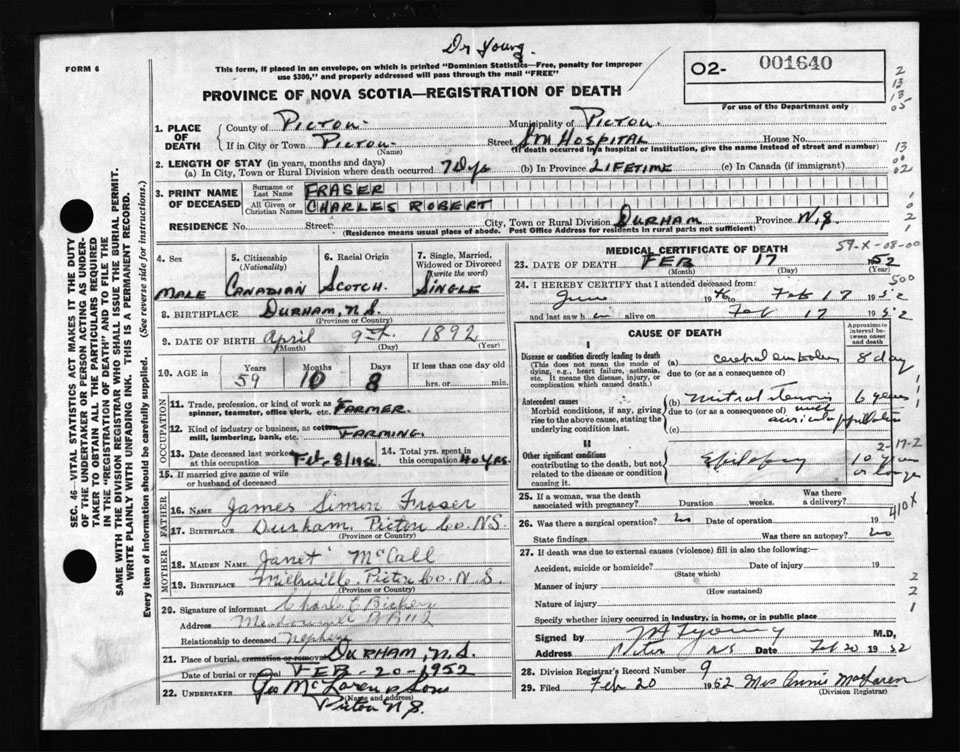 Dr Young.
FORM 6
This form, if placed in an envelope, on which is printed "Dominion Statistics—Free, penalty for improper
use $300," and properly addressed will pass through the mail "FREE"
O2- 001640
For use of the Department only
PROVINCE OF NOVA SCOTIA—REGISTRATION OF DEATH
2
13
13
05
13
00
02
1
0
2
1
SEC. 46—VITAL STATISTICS ACT MAKES IT THE DUTY
OF THE UNDERTAKER OR PERSON ACTING AS UNDER-
TAKER TO OBTAIN ALL THE PARTICULARS REQUIRED
IN THE "REGISTRATION OF DEATH" AND TO FILE THE
SAME WITH THE DIVISION REGISTRAR WHO SHALL ISSUE THE BURIAL PERMIT.
WRITE PLAINLY WITH UNFADING INK. THIS IS A PERMANENT RECORD.
Every item of information should be carefully supplied. (See reverse side for instructions.)
1. PLACE OF DEATH County of PICTOU. Municipality of PICTOU.
If in City or Town PICTOU. Street HOSPITAL House No.
(Name) (If death occurred in a hospital or institution, give the name instead of street and number)
2. LENGTH OF STAY (in years, months and days)
(a) In City, Town or Rural Division where death occurred 7 Dys (b) In Province LIFETIME (c) In Canada (if immigrant)
3. PRINT NAME OF DECEASED Surname or Last Name FRASER
All Given or Christian Names CHARLES ROBERT
RESIDENCE No. Street: City, Town or Rural Division DURHAM Province N.S.
(Residence means usual place of abode. Post Office Address for residents in rural parts not sufficient)
59-X-08-00
4. Sex 5. Citizenship (Nationality) 6. Racial Origin 7. Single, Married, Widowed or Divorced (write the word)
MALE CANADIAN SCOTCH. SINGLE
8. BIRTHPLACE DURHAM, N.S.
(Province or Country)
9. DATE OF BIRTH April 9th 1892
(Month) (Day) (Year)
10. AGE in Years Months Days If less than one day old
59 10 8 hrs. or min.
OCCUPATION
11. Trade, profession or kind of work as
spinner, teamster, office clerk, etc. FARMER.
12. Kind of industry or business, as cotton
mill, lumbering, bank, etc. FARMING.
13. Date deceased last worked at this occupation Feb. 8/1952 14. Total yrs. spent in this occupation 40 YRS.
15. If married give name of wife
or husband of deceased
FATHER
16. Name James Simon Fraser
17. Birthplace Durham, Pictou Co. N.S.
(Province or Country)
MOTHER
18. MAIDEN NAME Janet McCall
19. BIRTHPLACE Millsville, Pictou Co. N.S.
(Province or Country)
20. Signature of informant Charles
Address
Relationship to deceased Nephew
21. Place of burial, cremation or removal DURHAM, N.S.
Date of burial or removal FEB - 20 - 1952
22. UNDERTAKER Geo McLaren & Sons
(Name and address)
Pictou N.S.
MEDICAL CERTIFICATE OF DEATH
23. DATE OF DEATH FEB 17 1952
(Month) (Day) (Year)
500
24. I HEREBY CERTIFY that I attended deceased from:
June 1946 to Feb 17 1952
and last saw h im alive on Feb 17 1952
CAUSE OF DEATH
Approximate interval between onset and death
I
Disease or condition directly leading to death (a) cerebral embolus 8 day
(This does not mean the mode of dying, e.g., heart failure, asthenia, etc. It means the disease, injury, or complication which caused death.)
due to (or as a consequence of)
Antecedent causes (b) mitral stenosis 6 years
Morbid conditions, if any, giving rise to the above cause, stating the underlying condition last.
due to (or as a consequence of) with
(c) auricular fibrillation
2-17-2
II
Other significant conditions Epilepsy 10 years
contributing to the death, but not related to the disease or condition causing it.
or longer
410 X
25. If a woman, was the death associated with pregnancy? Duration weeks. Was there a delivery?
26. Was there a surgical operation? no Date of operation 19
State findings Was there an autopsy? no
27. If death was due to external causes (violence) fill in also the following:—
Accident, suicide or homicide? Date of injury 19
(State which)
Manner of injury
(How sustained)
Nature of injury
2
2
1
Specify whether injury occurred in industry, in home, or in public place
Signed by Young M.D,
Address Pictou NS Date Feb 20 1952
28. Division Registrar's Record Number 9
29. Filed Feb 20 1952 Mrs Annie MacLaren
(Division Registrar)